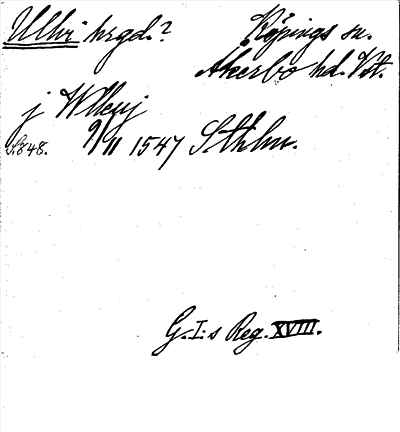 Ullvi hrgd.? Köpings sn.
Åkerbo hd. Vst.
j Wlleuj
S. 848. 9/11 1547 Sthlm.
G. I:s Reg. XVIII.